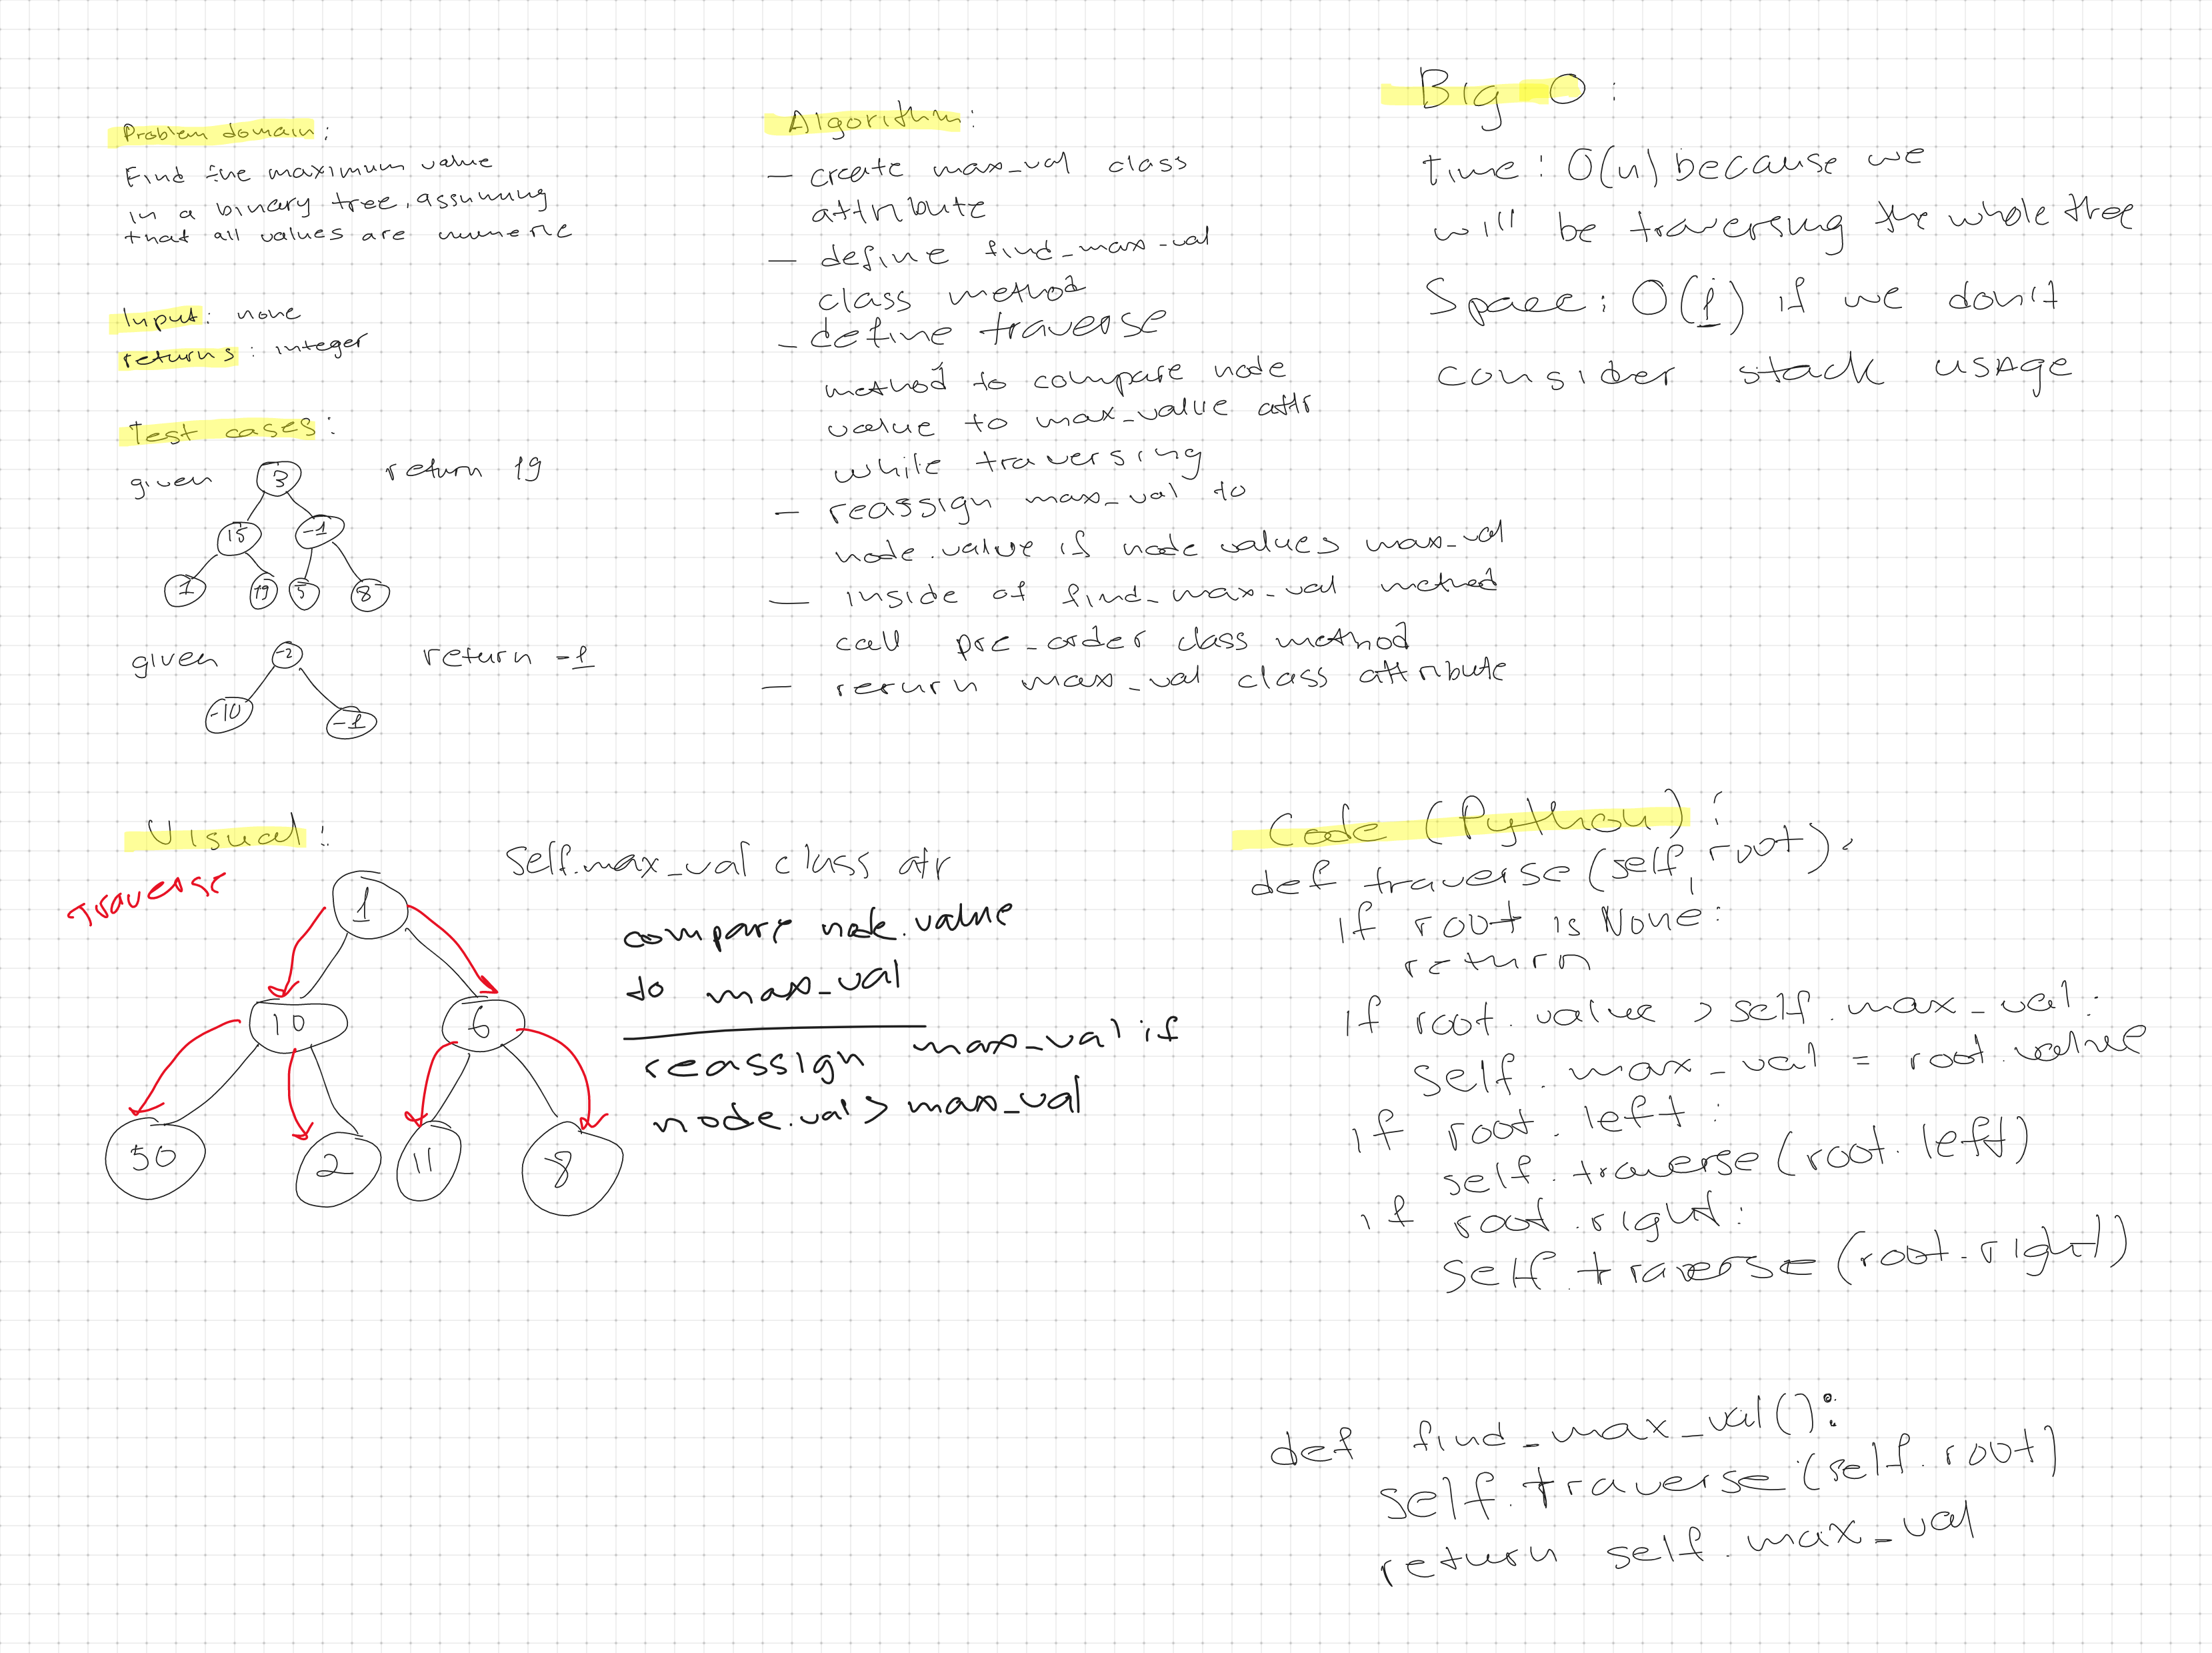 Problem domain:
Find the maximum value
in a binary tree, assuming
that all values are numeric
Input: none
returns: integer
Test cases:
given
3
return 19
15
-1
1
19
5
8
given
-2
return -1
-10
-1
Algorithm:
- create max_val class
attribute
- define find_max_val
class method
- define traverse
method to compare node
value to max_value attr
while traversing
- reassign max_val to
node.value if node value > max_val
- inside of find_max_val method
call pre_order class method
- rerurn max_val class attribute
Big O:
Time: O(n) because we
will be traversing the whole tree
Space: O(1) if we don't
consider stack usage
Visual:
Traverse
1
10
6
50
2
11
8
Self.max_val class atr
compare node.value
to max_val
reassign max_val if
node.val > max_val
Code (Python):
def traverse(self, root):
if root is None:
return
if root.value > self.max_val:
self.max_val = root.value
if root.left:
self.traverse(root.left)
if root.right:
self.traverse(root.right)
def find_max_val():
self.traverse(self.root)
return self.max_val